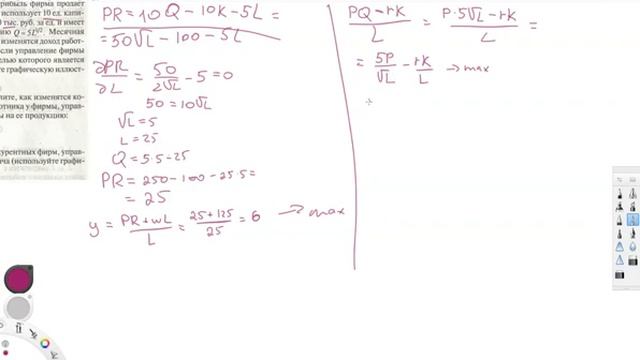 прибыль фирма продает
использует 10 ед. капи-
тыс. руб. за ед. и имеет
Q = 5L^{1/2}. Месячная
изменятся доход работ-
если управление фирмы
целью которого является
графическую иллюст-
как изменятся ко-
у фирмы, управ-
ы на ее продукцию:
курентных фирм, управ-
(используйте графи-
PR = 10Q - 10K - 5L =
= 50√L - 100 - 5L
∂PR/∂L = 50/2√L - 5 = 0
50 = 10√L
√L = 5
L = 25
Q = 5·5 = 25
PR = 250 - 100 - 25·5 =
= 25
y = PR + wL/L = 25 + 125/25 = 6 → max
PQ - rK/L = P·5√L - rK/L =
= 5P/√L - rK/L → max